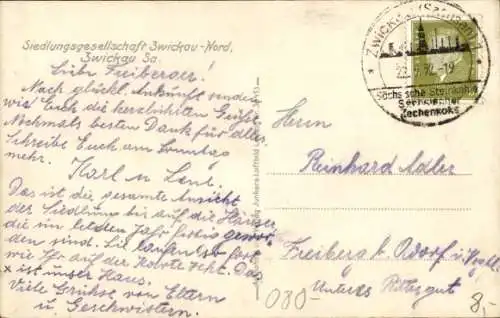 Siedlungsgesellschaft Zwickau-Nord,
Zwickau Sa.
Liebe Freiberger!
Nach glückl. Ankunft senden
wir Euch die herzlichsten Grüße.
Nochmals besten Dank für alles
Schreibe Euch am Sonntag
mehr.
Karl u. Lene.
Das ist die gesamte Ansicht
der Siedlung bis auf die Häuser
die im letzten Jahr fertig gewor-
den sind. Sie laufen so fort
wie Ihr auf der Karte seht. Das
x ist unser Haus.
Viele Grüße von Eltern
u. Geschwistern.
Junkers Luftbild
ZWICKAU (Sachsen) 1
32.-19
Sächsische Steinkohle
Zechenkoks
Herrn
Reinhard Adler
Freiberg b. Adorf i. Vogtl.
Unteres Rittergut
080-
8,-